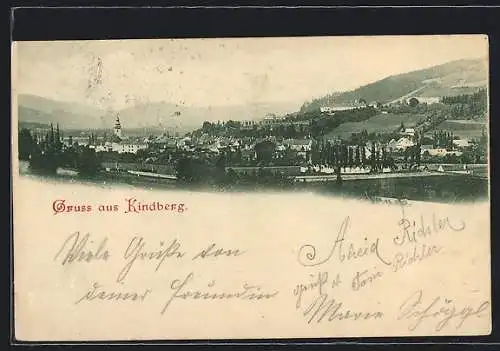 Gruss aus Kindberg.
Viele Grüße von
deiner Freundin
Richter
grüßt
Richter
Marie Schöggl